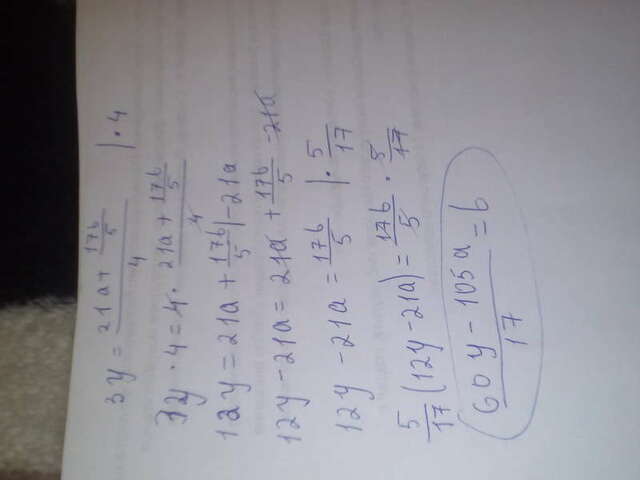 3y = (21a + 17b/5)/4 | · 4
3y · 4 = 4 · (21a + 17b/5)/4
12y = 21a + 17b/5 | -21a
12y - 21a = 21a + 17b/5 - 21a
12y - 21a = 17b/5 | · 5/17
5/17 (12y - 21a) = 17b/5 · 5/17
(60y - 105a)/17 = b